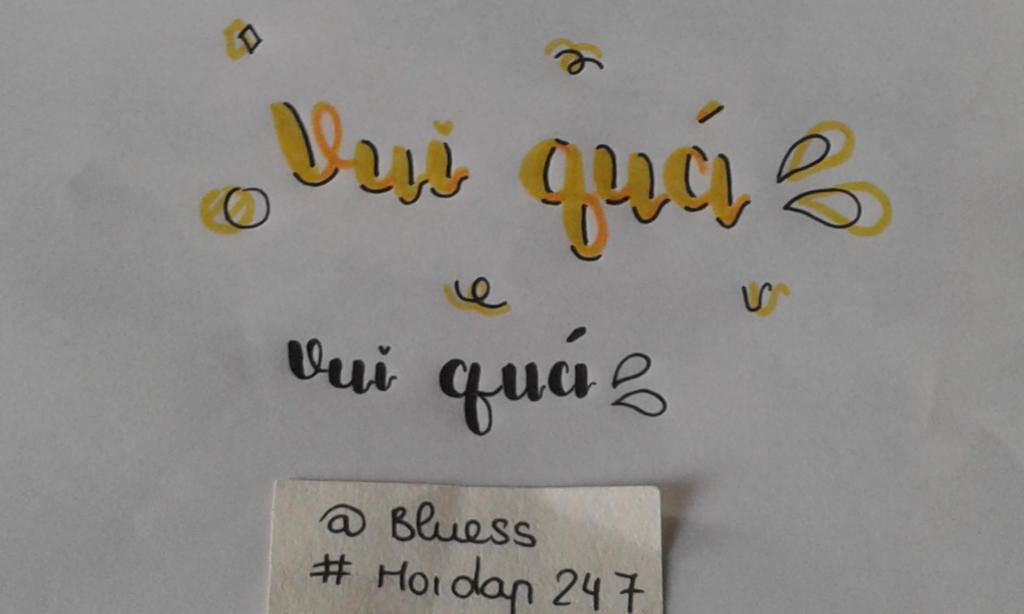 Vui quá
vui quá
@ Bluess
# Hoidap 247